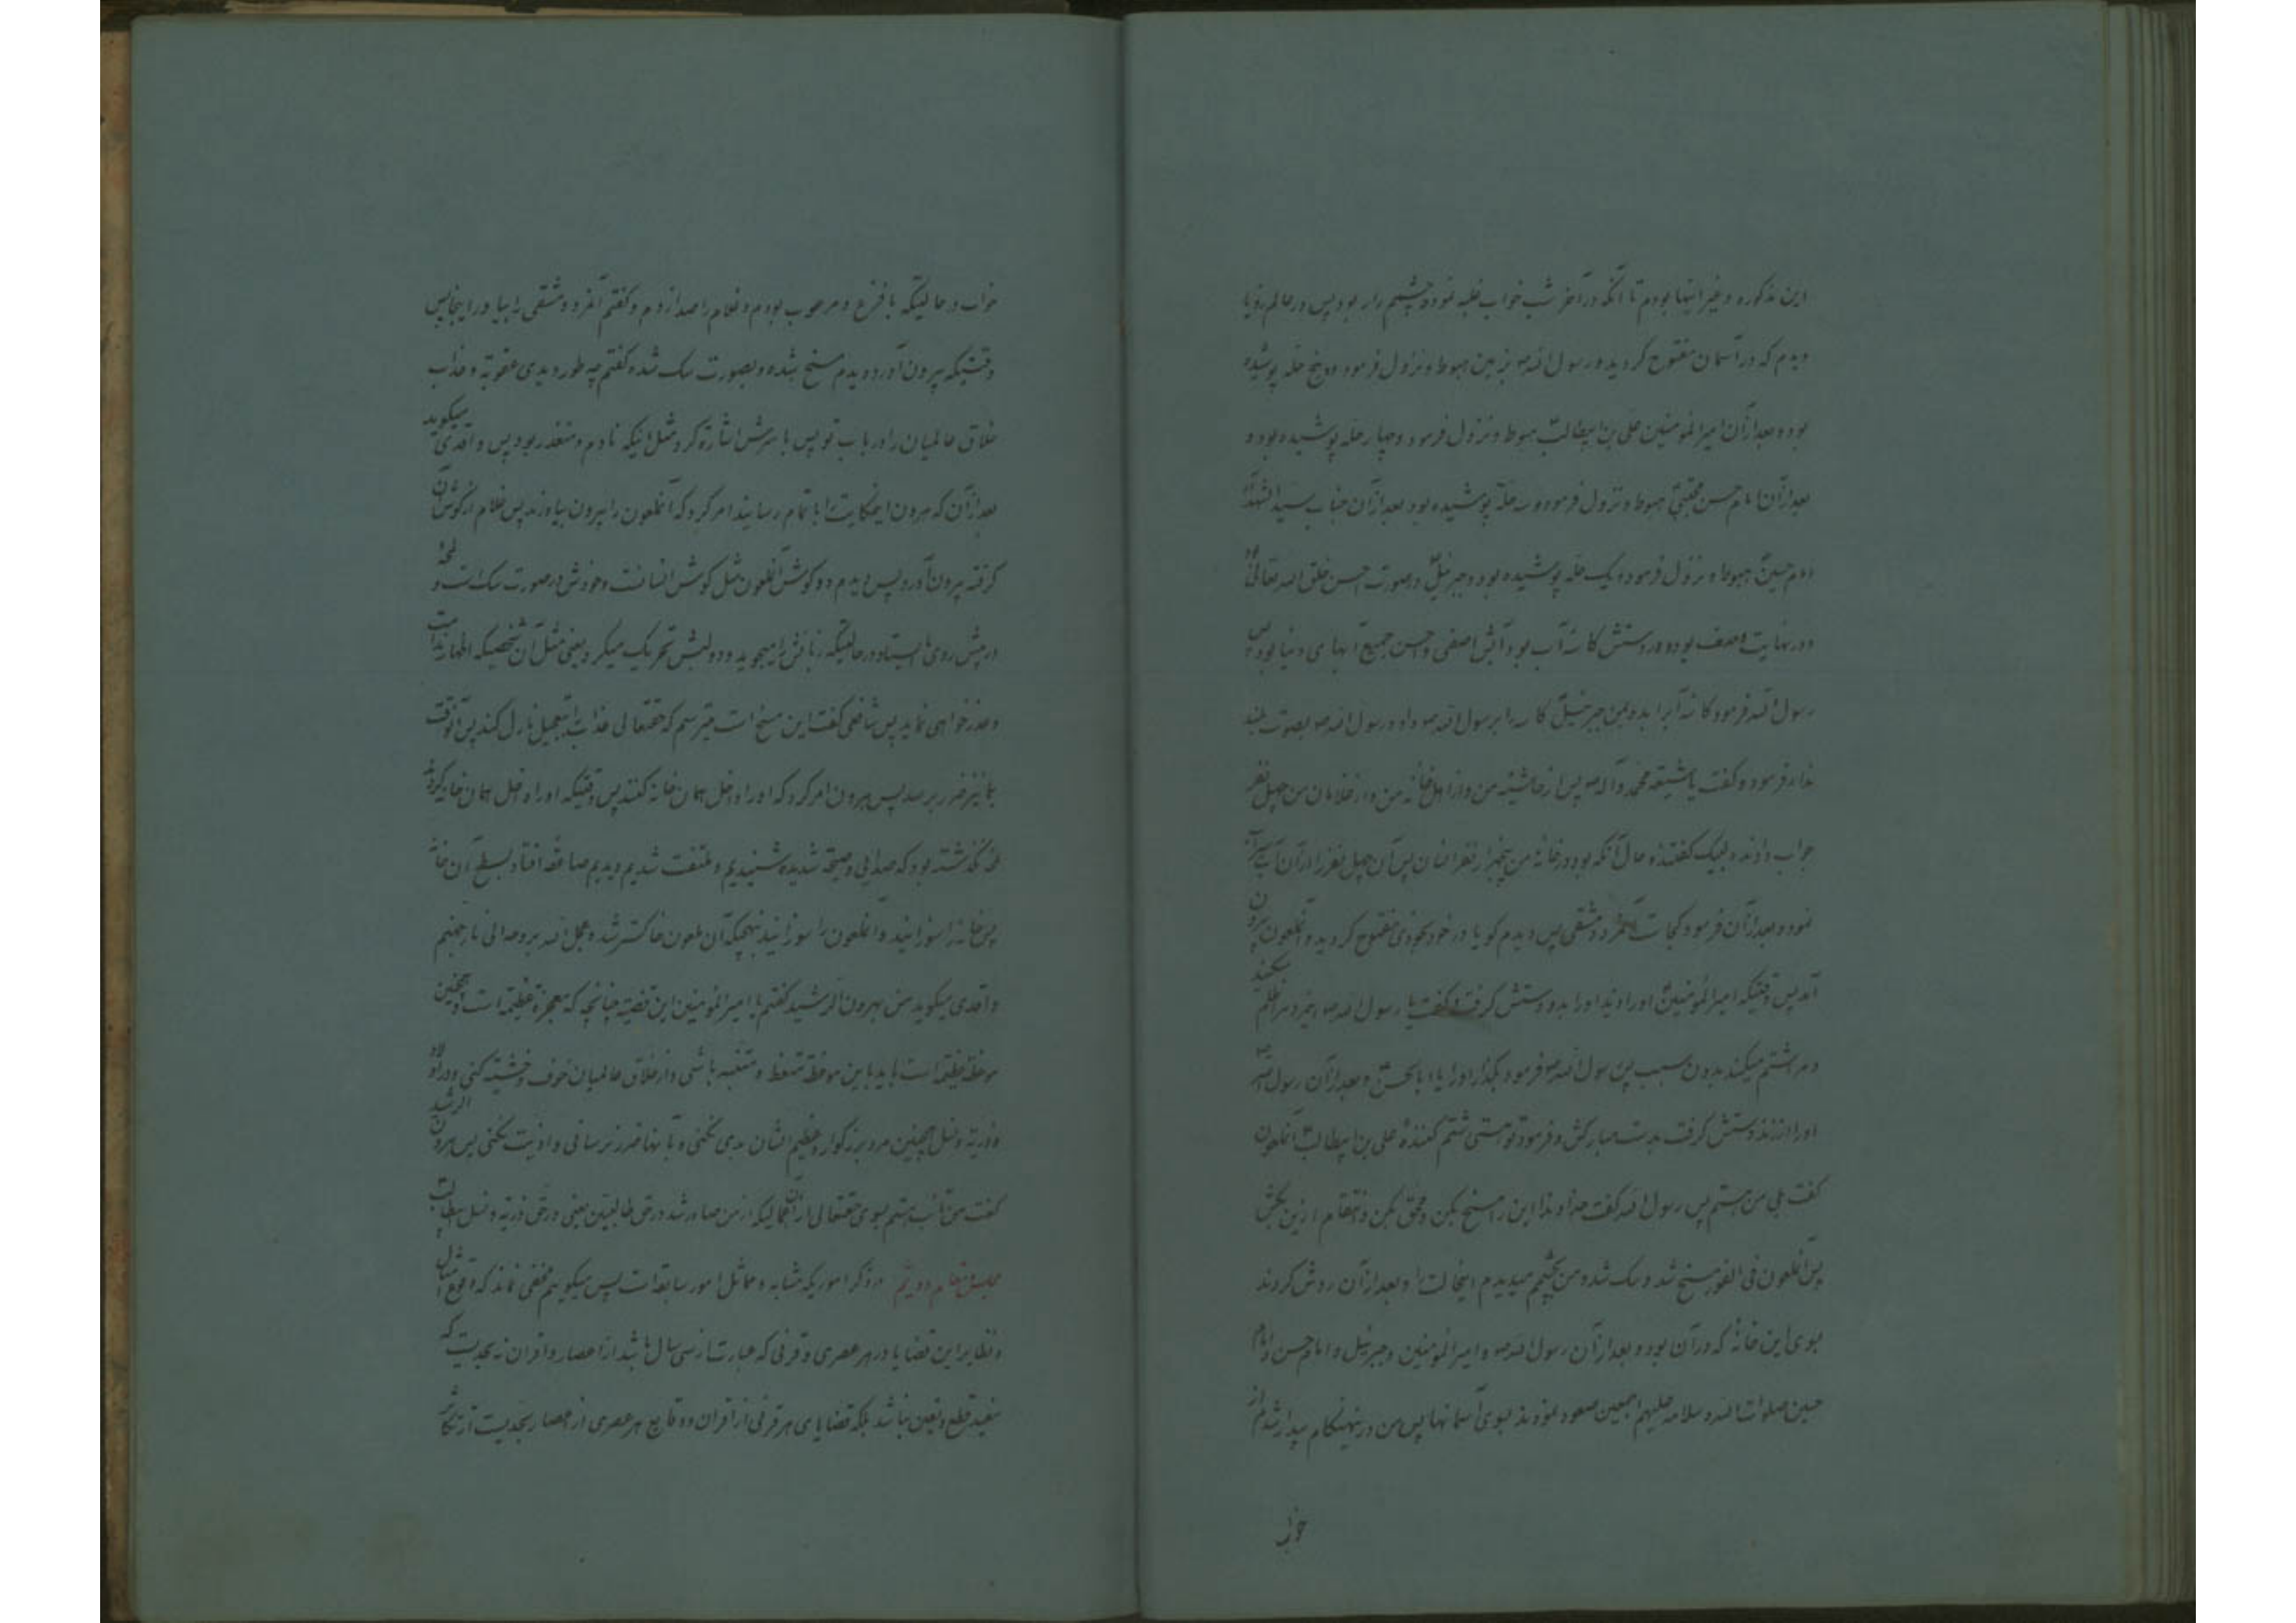 این مذکوره و غیر اینها بودم تا آنکه در آخر شب خواب غلبه نموده چشمم را ربود پس در عالم رؤیا
دیدم که در آسمان مفتوح گردید و رسول الله ص بزمین هبوط و نزول فرمود و پنج حله پوشیده
بود و بعد از آن امیر المؤمنین علی بن ابیطالب ع هبوط و نزول فرمود و چهار حله پوشیده بود و
بعد از آن امام حسن مجتبی ع هبوط و نزول فرمود و سه حله پوشیده بود بعد از آن جناب سید الشهداء
امام حسین ع هبوط و نزول فرمود و یک حله پوشیده بود و جبرئیل ع در صورت حسن خلق الله تعالی بود
و در نهایت وصف بود و در دستش کاسه آب بود آبش اصفی و احسن جمیع آبهای دنیا بود پس
رسول الله فرمود کاسه آب را بده بمن جبرئیل ع کاسه را برسول الله ص داد و رسول الله ص بصوت بلند
ندا فرمود و گفت یا شیعه محمد و آله ص پس از حاشیه من و از اهل خانه من و از غلامان من چهل نفر
جواب دادند و لبیک گفتند و حال آنکه بود در خانه من پنجهزار نفر انسان پس آن چهل نفر را از آن آب سیراب
نمود و بعد از آن فرمود کجاست آنمرد دمشقی پس دیدم گویا در خود بخودی مفتوح گردید و آنملعون بیرون
آمد پس وقتیکه امیر المؤمنین ع او را دید او را بدو دستش گرفت و گفت یا رسول الله ص این مرد مرا ظلم میکند
و مرا شتم میکند بدون سبب پس رسول الله ص فرمود بگذار او را یا ابا الحسن و بعد از آن رسول الله ص
او را از زند دستش گرفت بدست مبارکش و فرمود تو هستی شتم کننده علی بن ابیطالب ع آنملعون
گفت بلی من هستم پس رسول الله گفت خداوندا این را مسخ بکن و محق بکن و انتقام از این بکش
پس آنملعون فی الفور مسخ شد و سگ شد و من بچشمم میدیدم اینحالت را و بعد از آن ردش کردند
بسوی این خانه که در آن بود و بعد از آن رسول الله ص و امیر المؤمنین و جبرئیل و امام حسن و امام
حسین صلوات الله و سلامه علیهم اجمعین صعود نمودند بسوی آسمانها پس من در اینهنگام بیدار شدم از
خواب
خواب در حالتیکه با فزع و مرعوب بودم و غلام را صدا زدم و گفتم آنمرد دمشقی را بیاور اینجا پس
وقتیکه بیرون آورد دیدم مسخ شده و بصورت سگ شده گفتم چه طور دیدی عقوبة و عذاب
خلاق عالمیان را در باب تو پس با سرش اشاره کرد مثل اینکه نادم و متعذر بود پس واقدی میگوید
بعد از آن که هرون اینحکایت را باتمام رسانید امر کرد که آنملعون را بیرون بیاورند پس غلام از گوش آن
گرفته بیرون آورد پس دیدم دو گوش آنملعون مثل گوش انسان است و خودش در صورت سگ است و لحظه
در پیش روی ما ایستاد در حالتیکه زبانش را میجوید و دو لبش تحریک میکرد یعنی مثل آن شخصیکه اظهار ندامت
و عذر خواهی نماید پس شافعی گفت این مسخ است میترسم که حقتعالی عذاب را بتعجیل نازل کند پس آنوقت
بما نیز ضرر برسد پس هرون امر کرد که او را داخل همان خانه کنند پس وقتیکه او را داخل همان خانه کردند
لحظه نگذشته بود که صدایی و صیحه شدیده شنیدیم و ملتفت شدیم دیدیم صاعقه افتاد بسطح آن خانه
پس خانه را سوزانید و آنملعون را سوزانید بنهجیکه آن ملعون خاکستر شد و عجل الله بروحه الی نار جهنم
واقدی میگوید من بهرون الرشید گفتم یا امیر المؤمنین این قضیه چنانچه که معجزه عظیمه است و همچنین
موعظه عظیمه است باید باین موعظه متعظ و متنبه باشی و از خلاق عالمیان خوف و خشیت کنی و در اولاد
و ذریه و نسل همچنین مرد بزرگوار و عظیم الشان بدی نکنی و بآنها ضرر نرسانی و اذیت نکنی پس هرون الرشید
گفت من تائب هستم بسوی حقتعالی از آن اعمالیکه از من صادر شد در حق طالبیین یعنی در حق ذریه و نسل ابیطالب
مجلس و مقام دویم در ذکر اموریکه مشابه و مماثل امور سابقه است پس میگوییم مخفی نماند که وقوع امثال
و نظایر این قضایا در هر عصری و قرنی که عبارت از سی سال باشد از اعصار و اقران نه بحدیست که
مفید قطع و یقین نباشد بلکه قضایای هر قرنی از اقران و وقایع هر عصری از اعصار بحدیست از تکاثر